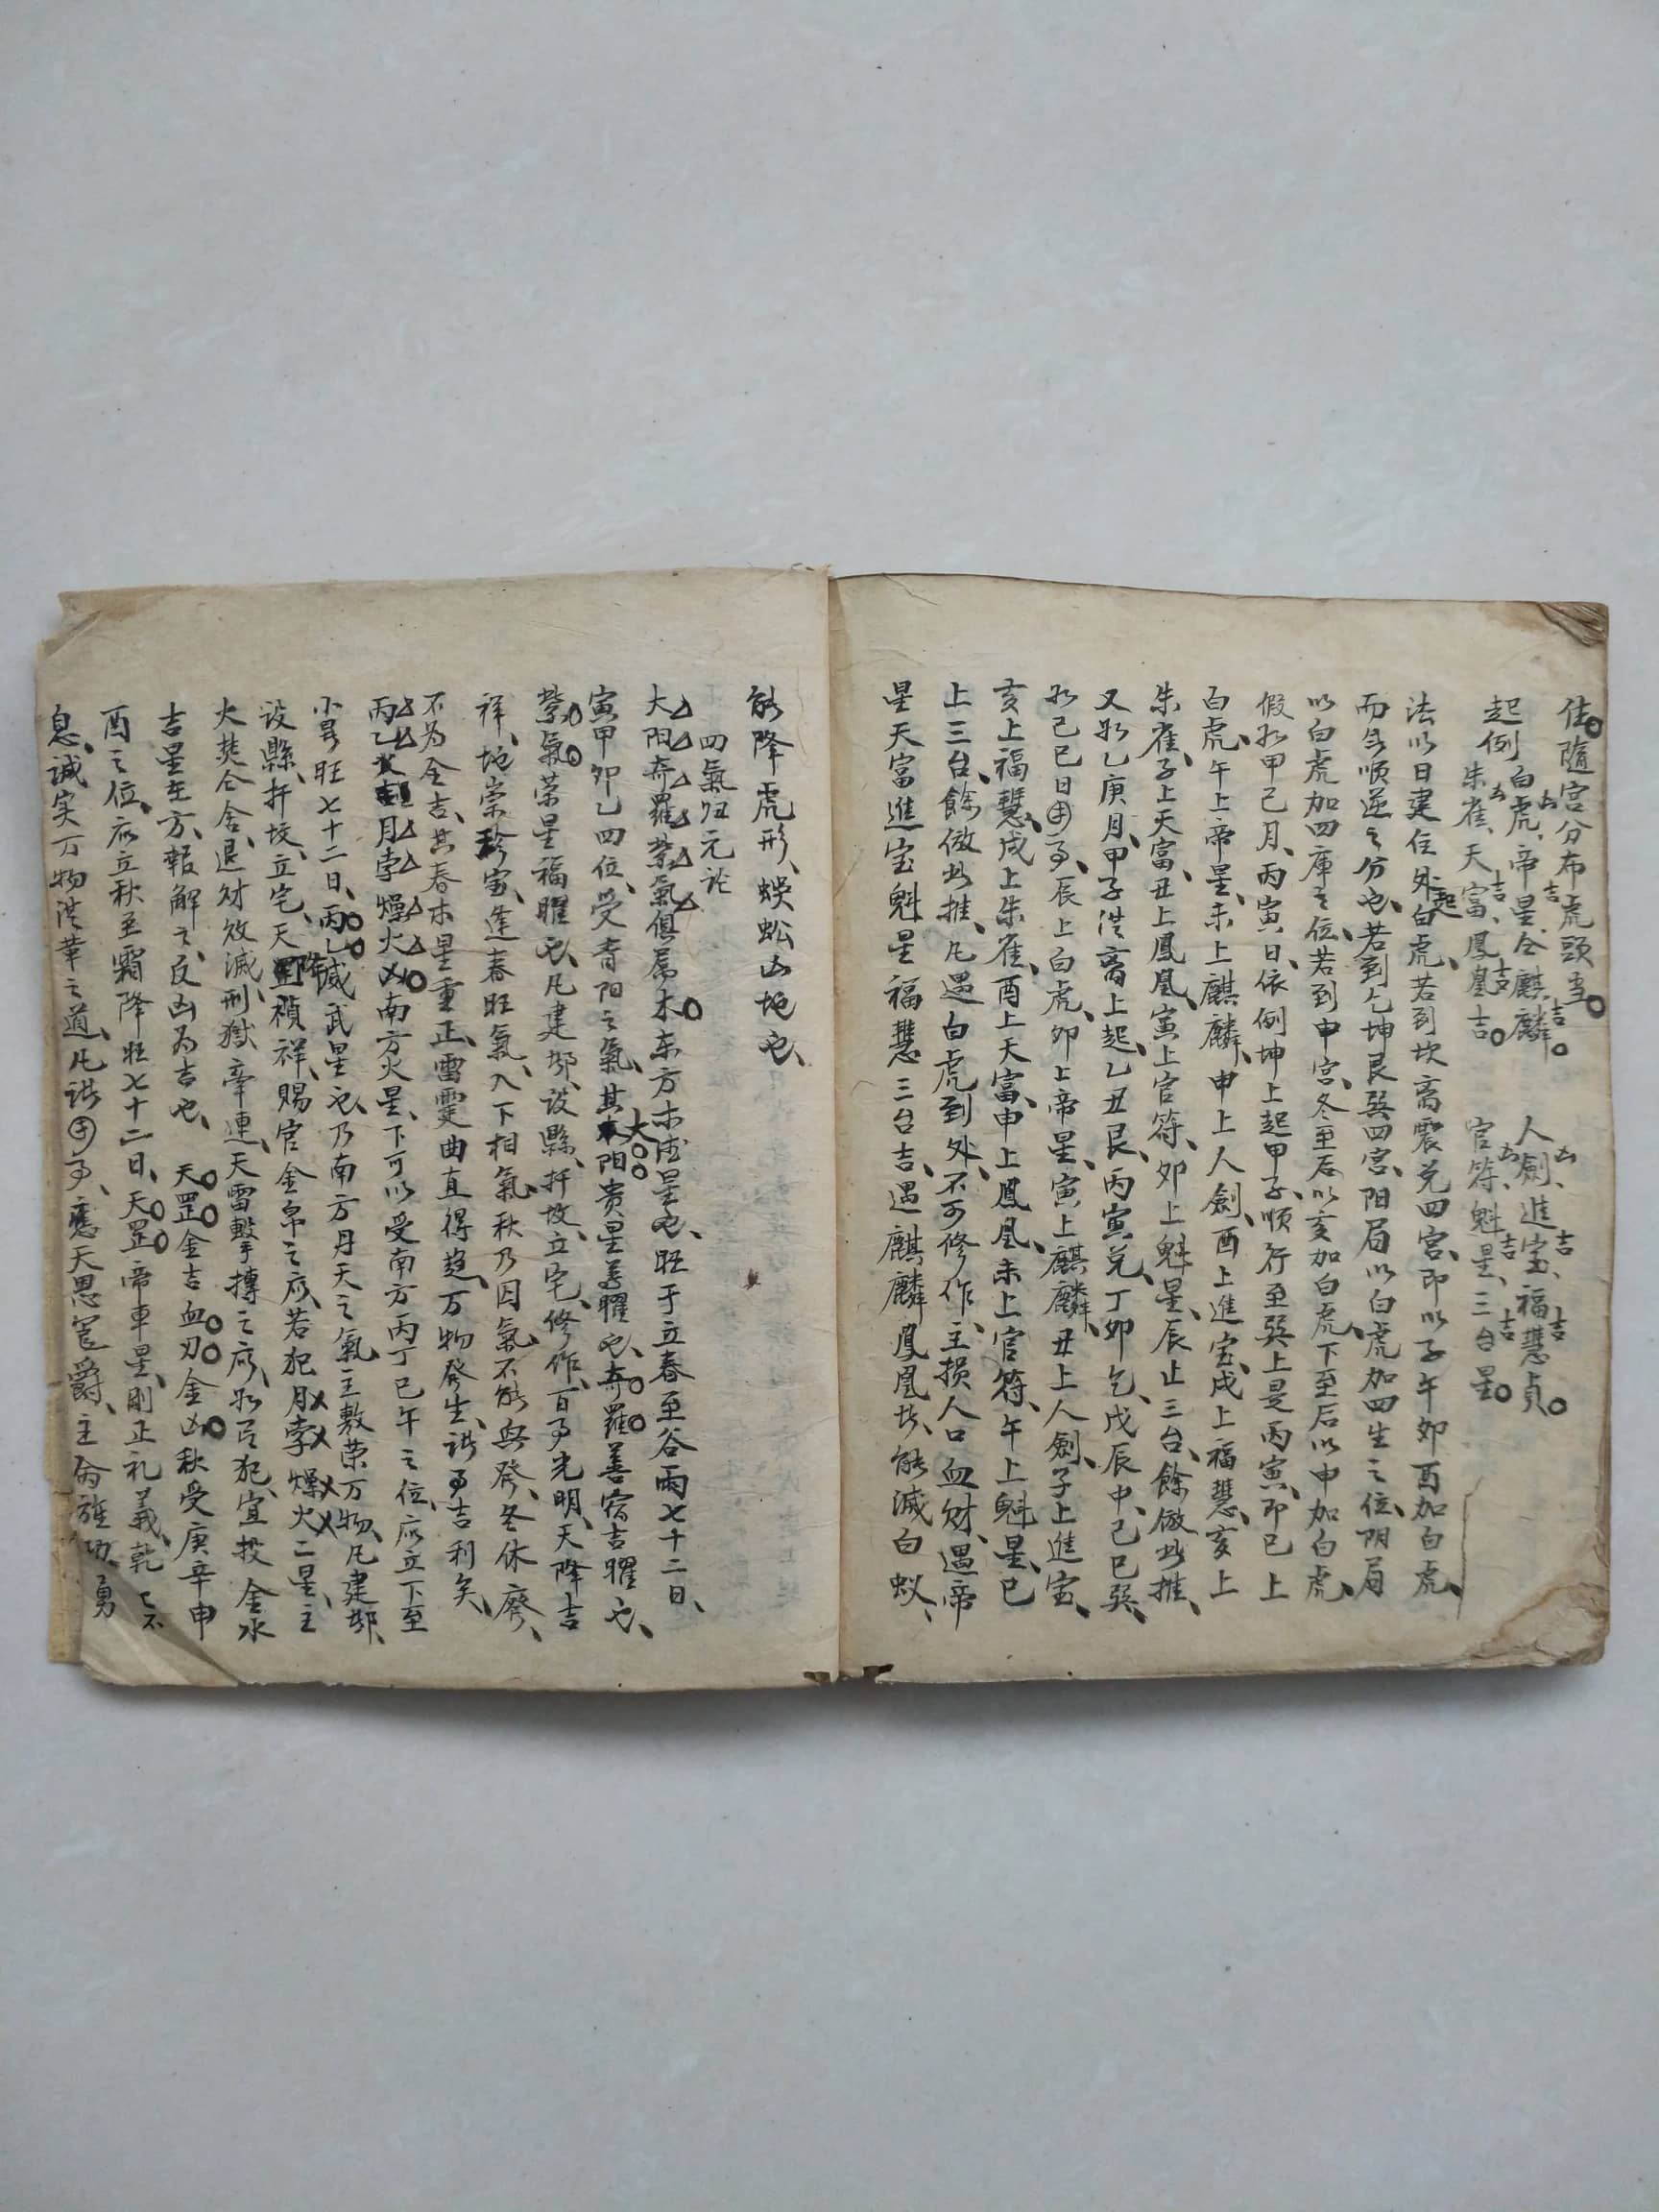 住隨宮分布虎頭
起例 白虎凶、帝星吉、全麒麟吉。 人劍凶、進宝吉、福慧吉貞。
朱雀凶、天富吉、鳳凰吉吉。 官符凶、魁星吉、三台吉星。
法以日建住外起白虎、若到坎离震兑四宮、即以子午卯酉加白虎、
而無順逆之分也、若到乞坤艮巽四宮、阳局以白虎加四生之位、阴局
以白虎加四庫之位、若到中宮、冬至后以亥加白虎、下至后以申加白虎、
假如甲己月、丙寅日、依例坤上起甲子、順行至巽上是丙寅、即巳上
白虎、午上帝星、未上麒麟、申上人劍、酉上進宝、戌上福慧、亥上
朱雀、子上天富、丑上鳳凰、寅上官符、卯上魁星、辰上三台、餘倣此推、
又如乙庚月、甲子从离上起、乙丑艮、丙寅兑、丁卯乞、戊辰中、己巳巽、
如己巳日用事、辰上白虎、卯上帝星、寅上麒麟、丑上人劍、子上進宝、
亥上福慧、戌上朱雀、酉上天富、申上鳳凰、未上官符、午上魁星、巳
上三台、餘倣此推、凡遇白虎到外、不可修作、主損人口血财、遇帝
星天富進宝魁星福慧三台吉、遇麒麟鳳凰、能減白蚁、
能降虎形、蜈蚣山地也、
四氣归元论
太阳奇羅紫氣俱属木、东方木德星也、旺于立春至谷雨七十二日、
寅甲卯乙四位、受青阳之氣、其太阳贵星善曜也、奇羅善宿吉曜也、
紫氣荣星福曜也、凡建都、設縣、扦坟、立宅、修作、百事光明、天降吉
祥、地崇珍宝、逢春旺氣、入下相氣、秋乃囚氣、不能與発、冬休廢、
不为全吉、其春木星重正、雷霆曲直得、万物発生、诸事吉利矣、
丙乙月孛燥火凶、南方火星、下可以受南方丙丁巳午之位、应立下至
小暑旺七十二日、丙乙威武星也、乃南方丹天之氣、主敷荣万物、凡建都、
設縣、扦坟、立宅、天降禎祥、賜官金帛之应、若犯月孛燥火二星、主
火焚仓舍、退财敗滅、刑獄牽連、天雷擊摶之应、如已犯、宜投金水
吉星至方、報解之、反凶为吉也、 天罡金吉血刃金凶、秋受庚辛申
酉之位、应立秋至霜降旺七十二日、天罡帝車星、剛正礼義、乾
息、诚实万物从革之道、凡诸用事、應天恩官爵、主勇